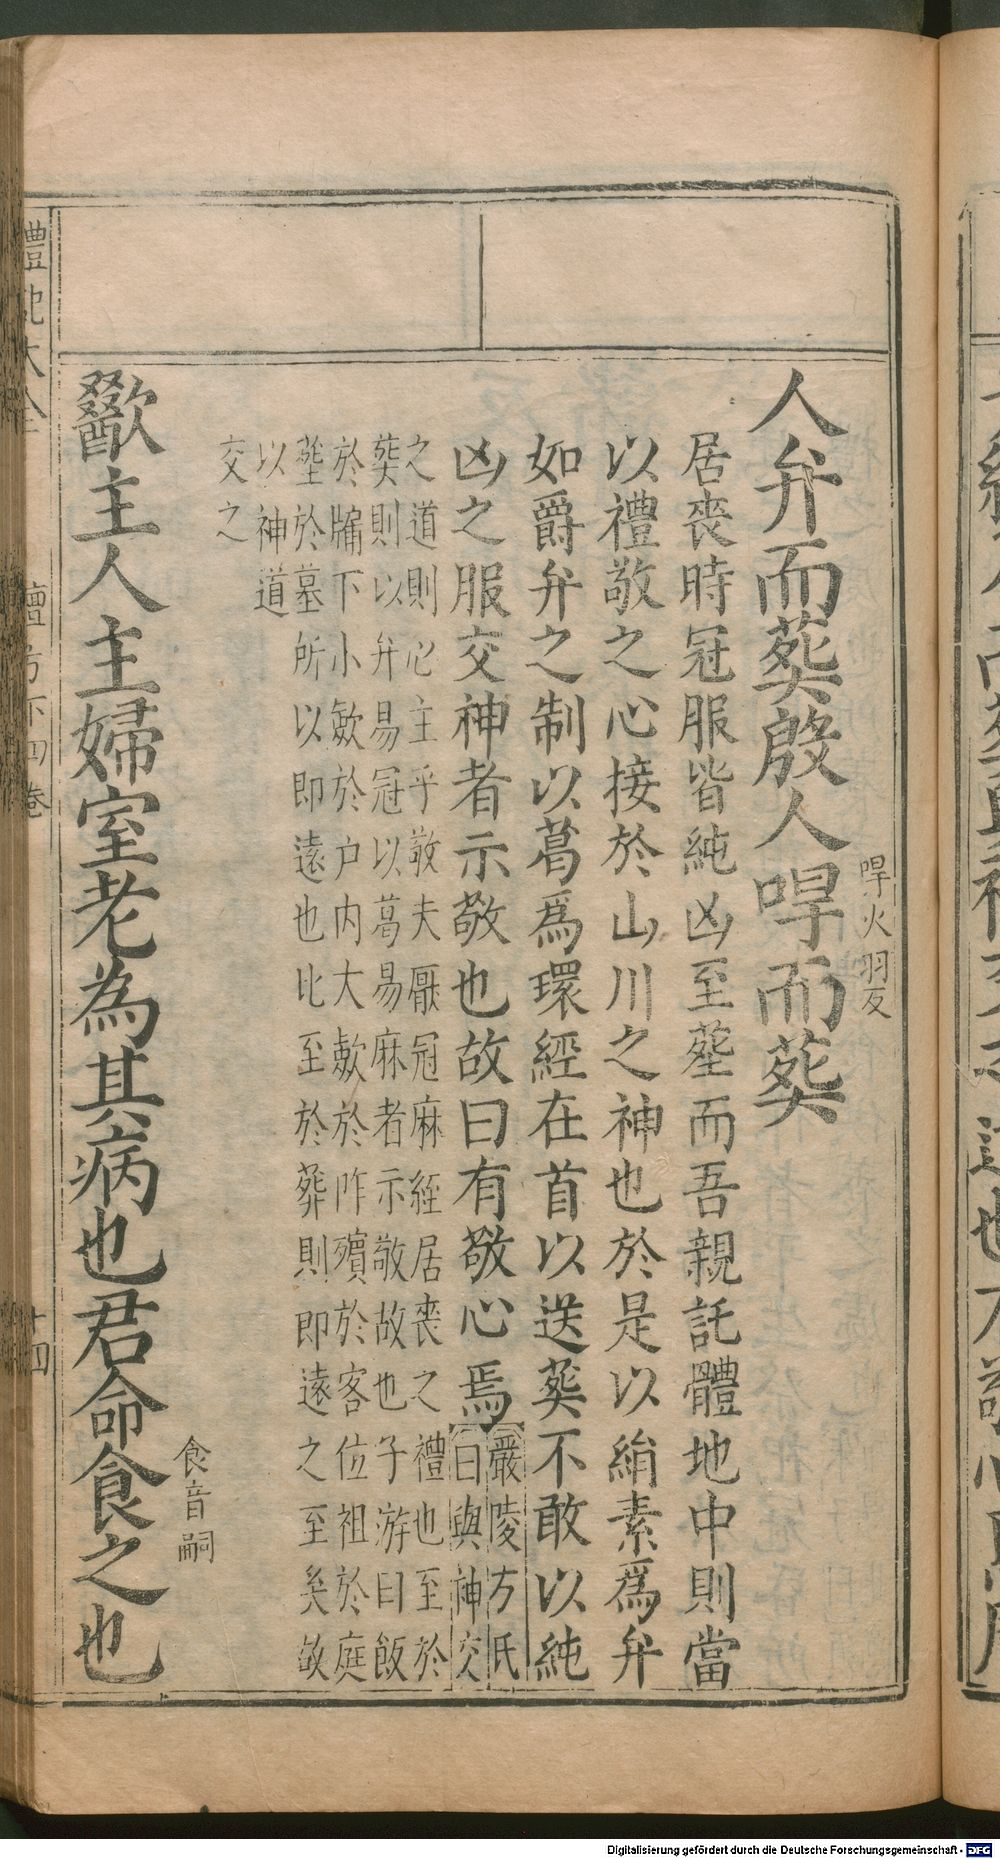 人弁而葬殷人哻而葬
哻火羽反
居喪時冠服皆純凶至塟而吾親託體地中則當
以禮敬之心接於山川之神也於是以絹素爲弁
如爵弁之制以葛爲環經在首以送葬不敢以純
凶之服交神者示敬也故曰有敬心焉
嚴陵方氏
曰與神交
之道則心主乎敬夫厭冠麻絰居喪之禮也至於
葬則以弁易冠以葛易麻者示敬故也子游曰飯
於牖下小斂於户内大斂於阼殯於客位祖於庭
塟於墓所以即遠也比至於葬則即遠之至矣敬
以神道
交之
歠主人主婦室老為其病也君命食之也
食音嗣
禮記大全
檀弓下四卷
十四
Digitalisierung gefördert durch die Deutsche Forschungsgemeinschaft - DFG